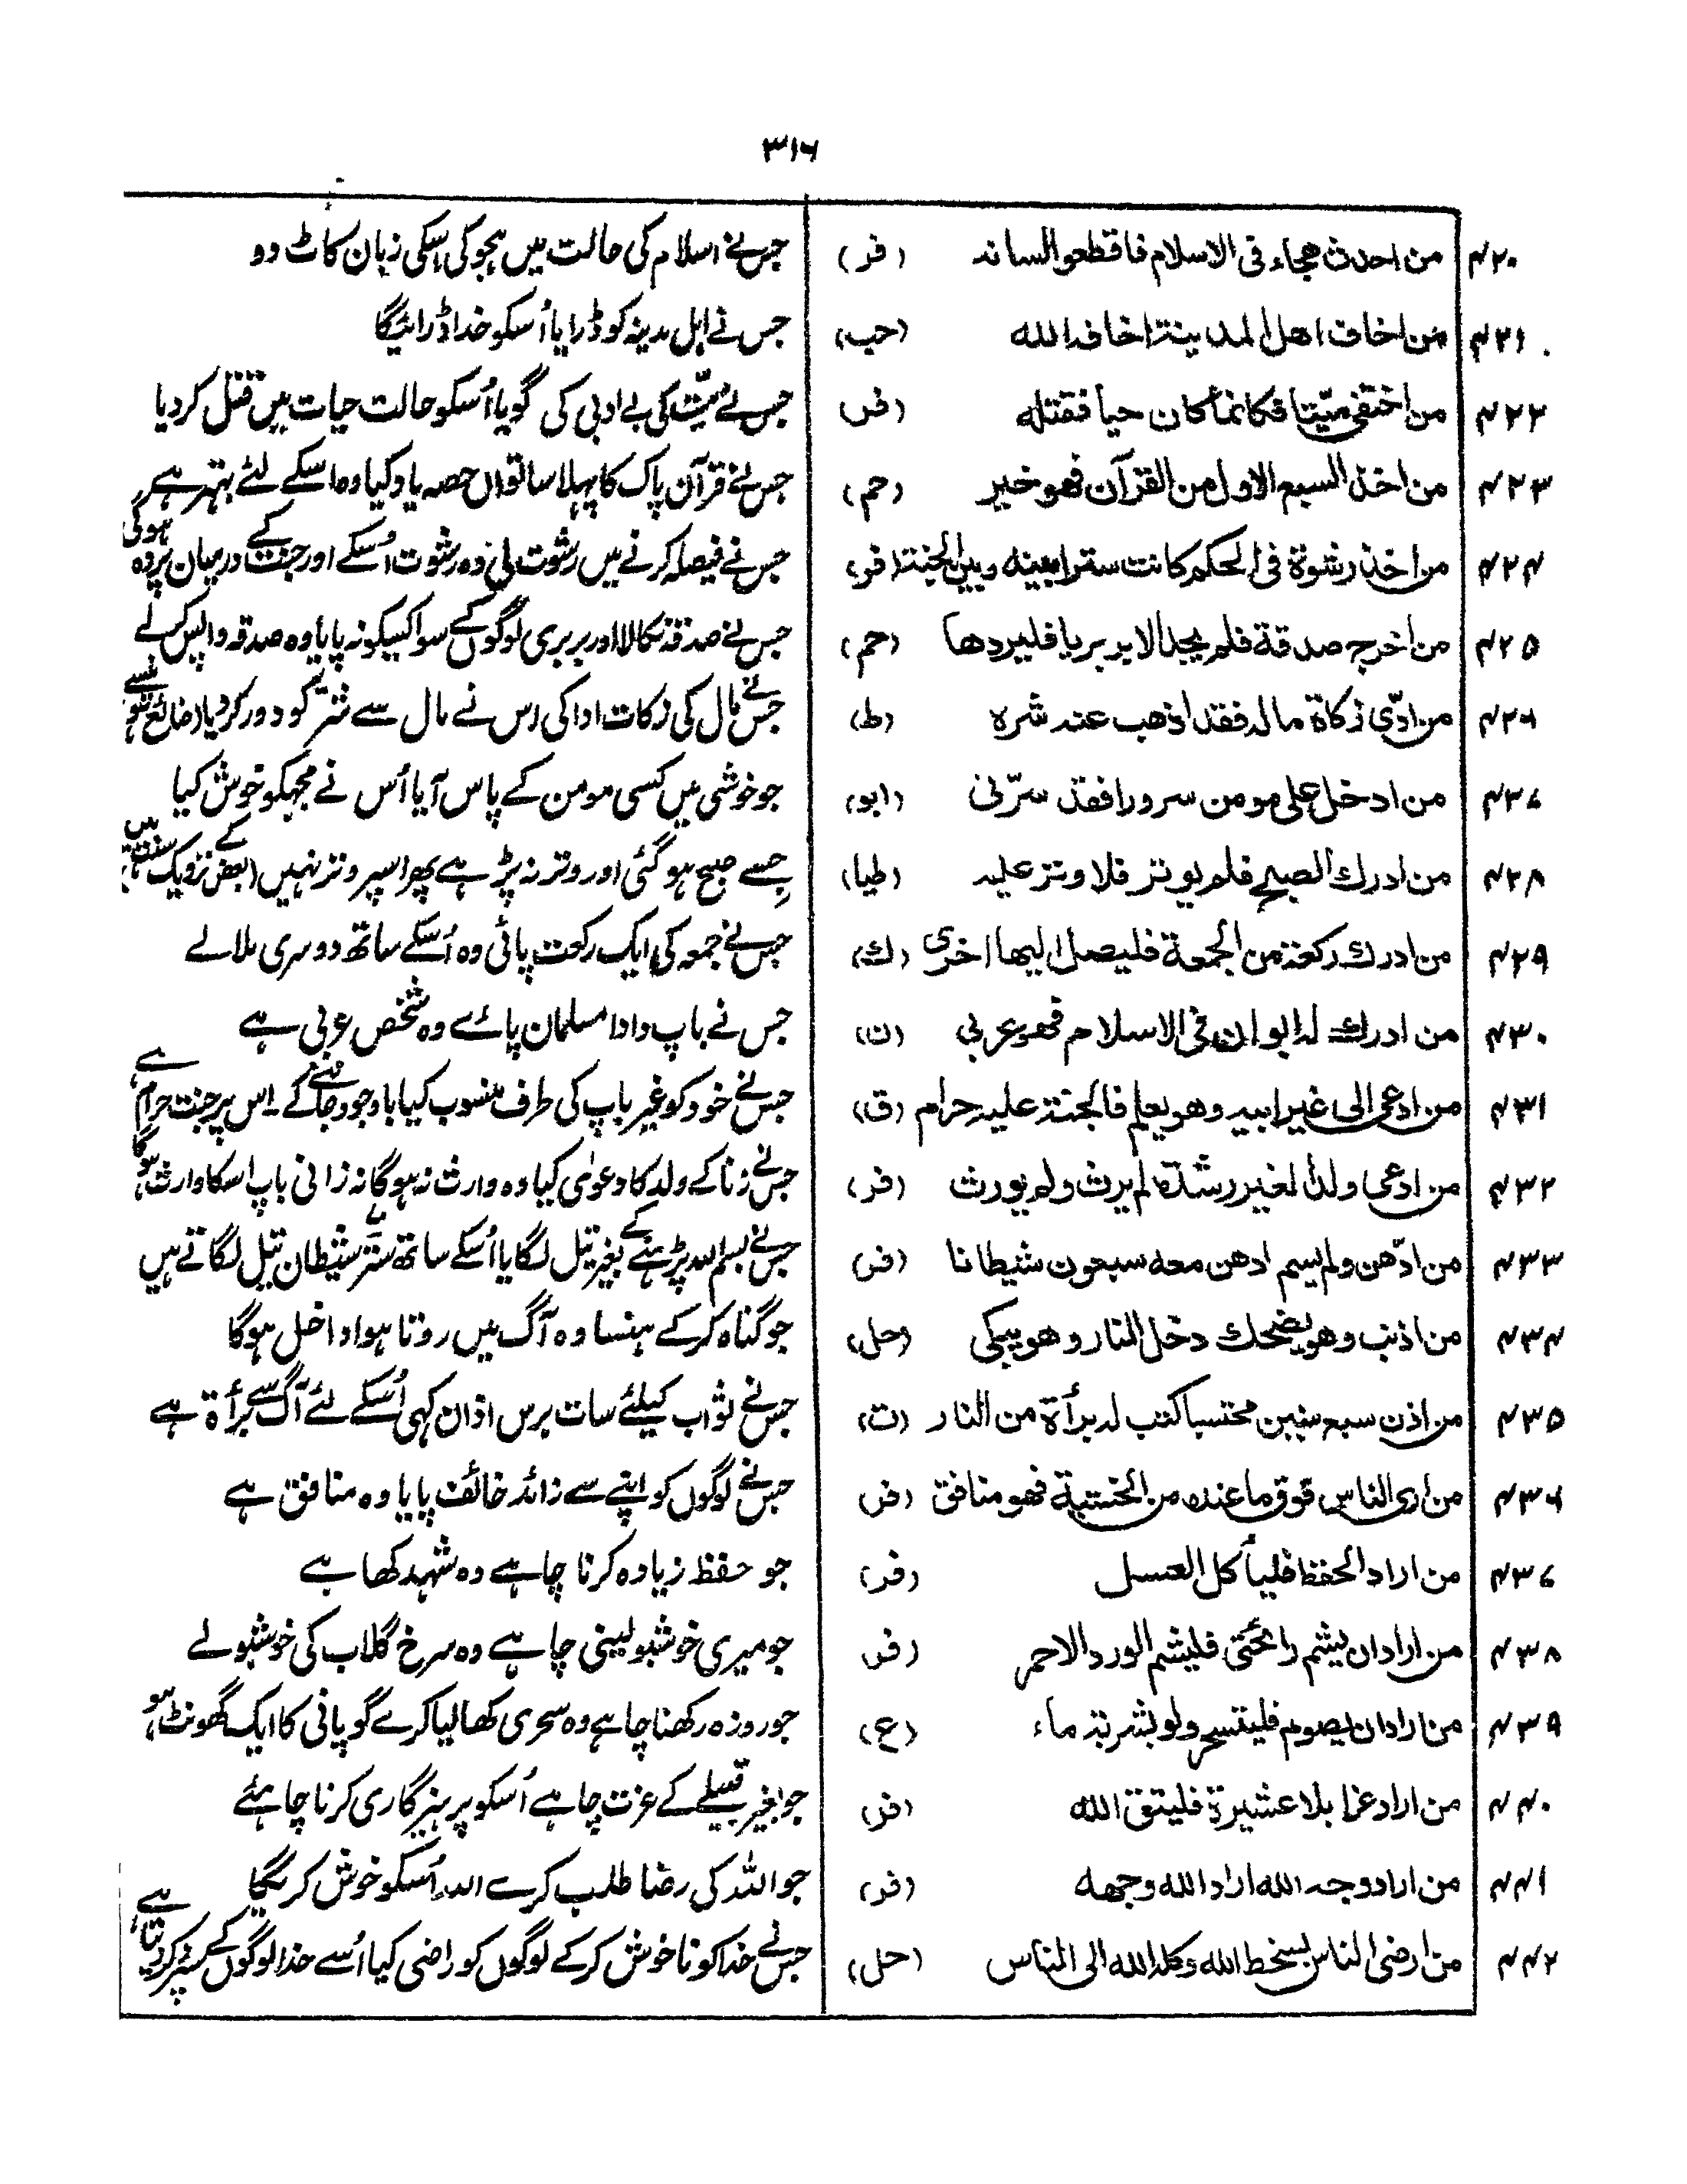 ۳۱۶
۴۲۰ من احدث هجاء فی الاسلام فاقطعوا لسانہ (فر) جس نے اسلام کی حالت میں ہجو کی اسکی زبان کاٹ دو
۴۲۱ من اخاف اهل المدینۃ اخافہ اللہ (حب) جس نے اہل مدینہ کو ڈرایا اُسکو خدا ڈرائیگا
۴۲۲ من اختفی میّتا فکانما کان حیا فقتله (فر) جس نے میّت کی بے ادبی کی گویا اُسکو حالت حیات میں قتل کر دیا
۴۲۳ من اخذ السبع الاول من القرآن فهو خیر (حم) جس نے قرآن پاک کا پہلا ساتواں حصہ یاد کیا وہ اسکے لئے بہتر ہے
۴۲۴ من اخذ رشوۃ فی الحکم کانت سترا بینه وبین الجنۃ (فر) جس نے فیصلہ کرنے میں رشوت لی وہ رشوت اُسکے اور جنت کے درمیان پردہ ہوگی
۴۲۵ من اخرج صدقة فلم یجد الا بربریا فلیردها (حم) جس نے صدقہ نکالا اور بربری لوگوں کے سوا کسیکو نہ پایا وہ صدقہ واپس کرلے
۴۲۶ من ادّی زکاۃ مالہ فقد اذهب عنہ شرہ (ط) جس نے مال کی زکات ادا کی اس نے مال سے شر کو دور کر دیا
۴۳۷ من ادخل علی مومن سرورا فقد سرّنی (ابو) جو خوشی میں کسی مومن کے پاس آیا اُس نے مجھکو خوش کیا
۴۲۸ من ادرك الصبح فلم یوتر فلا وتر علیہ (طیا) جسے صبح ہو گئی اور وتر نہ پڑہے پھر اسپر وتر نہیں (بعض کے نزدیک
۴۲۹ من ادرك رکعۃ من الجمعة فلیصل الیها اخری (ك) جس نے جمعہ کی ایک رکعت پائی وہ اُسکے ساتھ دوسری ملالے
۴۳۰ من ادرك لہ ابوان فی الاسلام فهو عربی (ن) جس نے باپ دادا مسلمان پائے وہ شخص عربی ہے
۴۳۱ من ادعی الی غیر ابیہ وهو یعلم فالجنۃ علیہ حرام (ق) جس نے خود کو غیر باپ کی طرف منسوب کیا باوجود جاننے کے۔ اس پر جنت حرام ہے
۴۳۲ من ادعی ولدا لغیر رشدۃ لم یرث ولم یورث (فر) جس نے زنا کے ولد کا دعوٰی کیا وہ وارث نہ ہوگا نہ زانی باپ اسکا وارث ہوگا
۴۳۳ من ادّهن ولم یسم ادهن معه سبعون شیطانا (فر) جس نے بسم اللہ پڑہنے کے بغیر تیل لگایا اُسکے ساتھ ستّر شیطان تیل لگاتے ہیں
۴۳۴ من اذنب وهو یضحك دخل النار وهو یبکی (حل) جو گناہ کرکے ہنسا وہ آگ میں روتا ہوا داخل ہوگا
۴۳۵ من اذن سبع سنین محتسبا کتب لہ برأۃ من النار (ت) جس نے ثواب کیلئے سات برس اذان کہی اُسکے لئے آگ سے برأۃ ہے
۴۳۶ من اری الناس فوق ماعندہ من الخشیۃ فهو منافق (فر) جس نے لوگوں کو اپنے سے زائد خائف پایا وہ منافق ہے
۴۳۷ من اراد الحفظ فلیأکل العسل (فر) جو حفظ زیادہ کرنا چاہے وہ شہد کھاہے
۴۳۸ من اراد ان یشم رائحتی فلیشم الورد الاحمر (فر) جو میری خوشبو لینی چاہے وہ سرخ گلاب کی خوشبو لے
۴۳۹ من اراد ان یصوم فلیتسحر ولو بشربۃ ماء (ع) جو روزہ رکھنا چاہے وہ سحری کھالیا کرے گو پانی کا ایک گھونٹ ہو
۴۴۰ من اراد عزا بلا عشیرۃ فلیتق اللہ (فر) جو بغیر قبیلے کے عزت چاہے اُسکو پرہیزگاری کرنا چاہئے
۴۴۱ من اراد وجہ اللہ اراد اللہ وجهه (فر) جو اللہ کی رضا طلب کرے اللہ اُسکو خوش کریگا
۴۴۲ من ارضی الناس بسخط اللہ وکلہ اللہ الی الناس (حل) جس نے خدا کو ناخوش کرکے لوگوں کو راضی کیا اُسے خدا لوگوں کے سپرد کر دیتا ہے